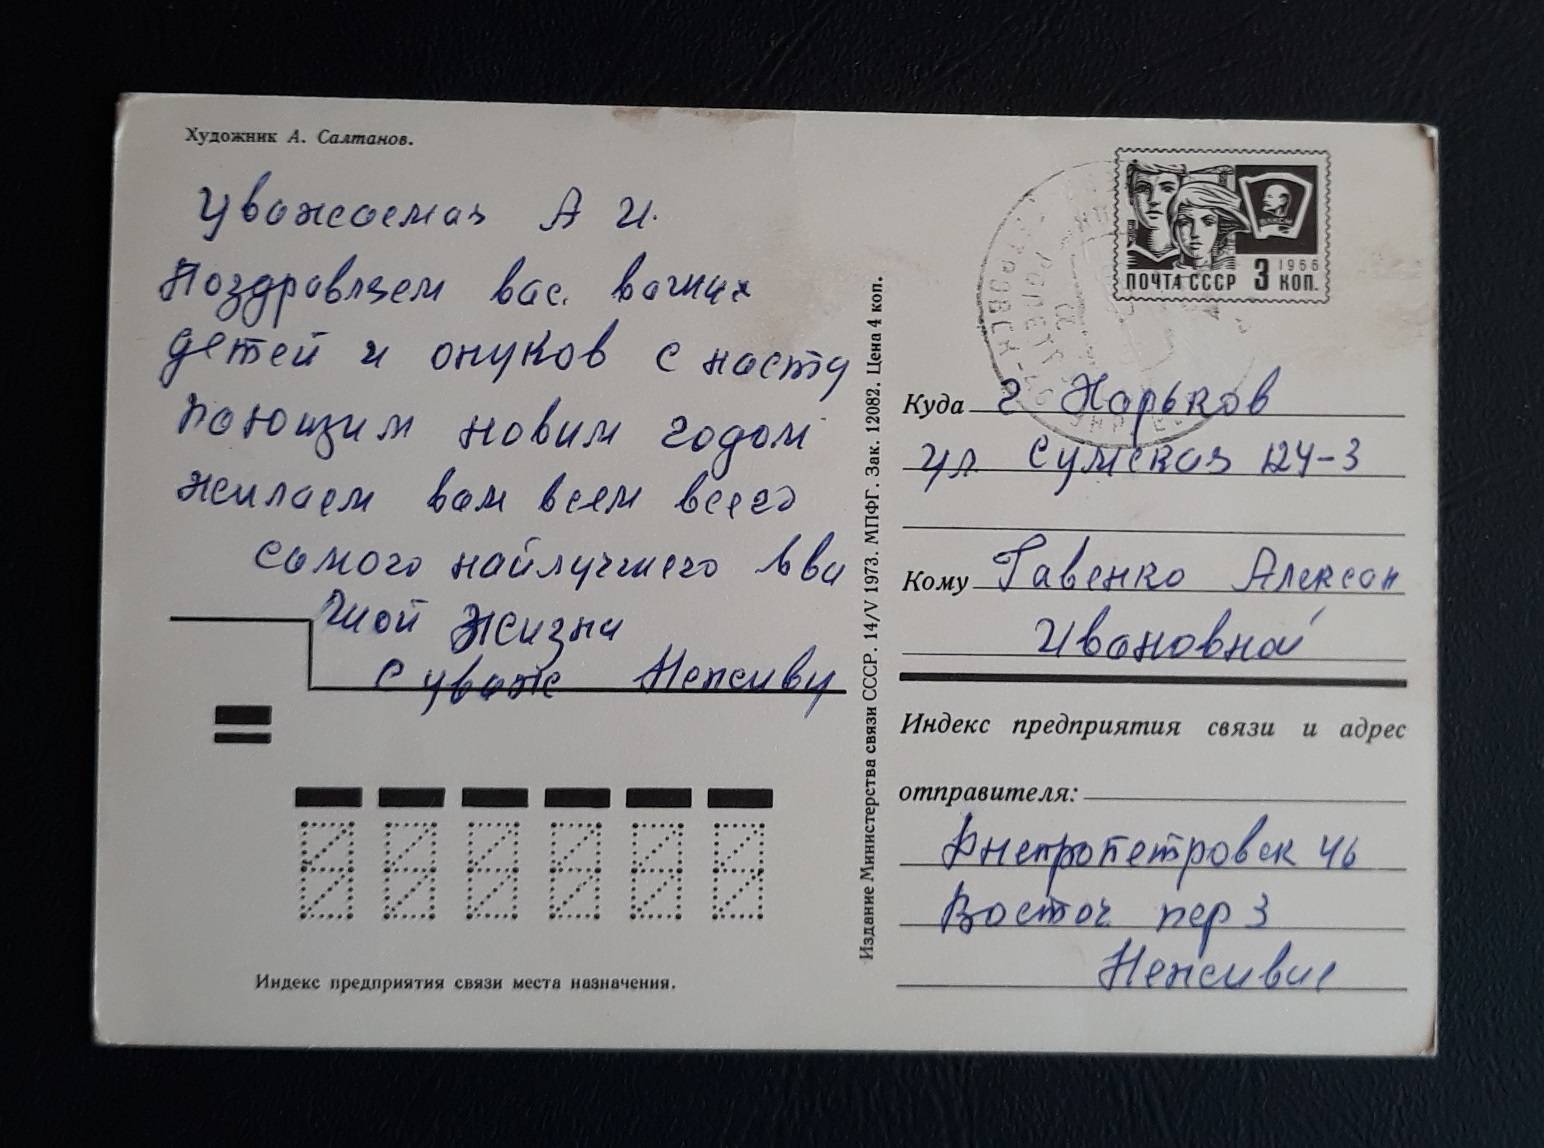 Художник А. Салтанов.
Уважаемая А И.
Поздравляем вас, ваших
детей и онуков с насту
пающим новим годом
желаем вам всем всего
самого найлучшего в ва
шой жизни
с уваже
Индекс предприятия связи места назначения.
Издание Министерства связи СССР. 14/V 1973. МПФГ. Зак. 12082. Цена 4 коп.
ВЛКСМ
1966
ПОЧТА СССР 3 КОП.
Куда г Харьков
ул Сумская 124-3
Кому Гавенко Алексан
Ивановной
Индекс предприятия связи и адрес
отправителя:
Днепропетровск 46
Восточ пер 3